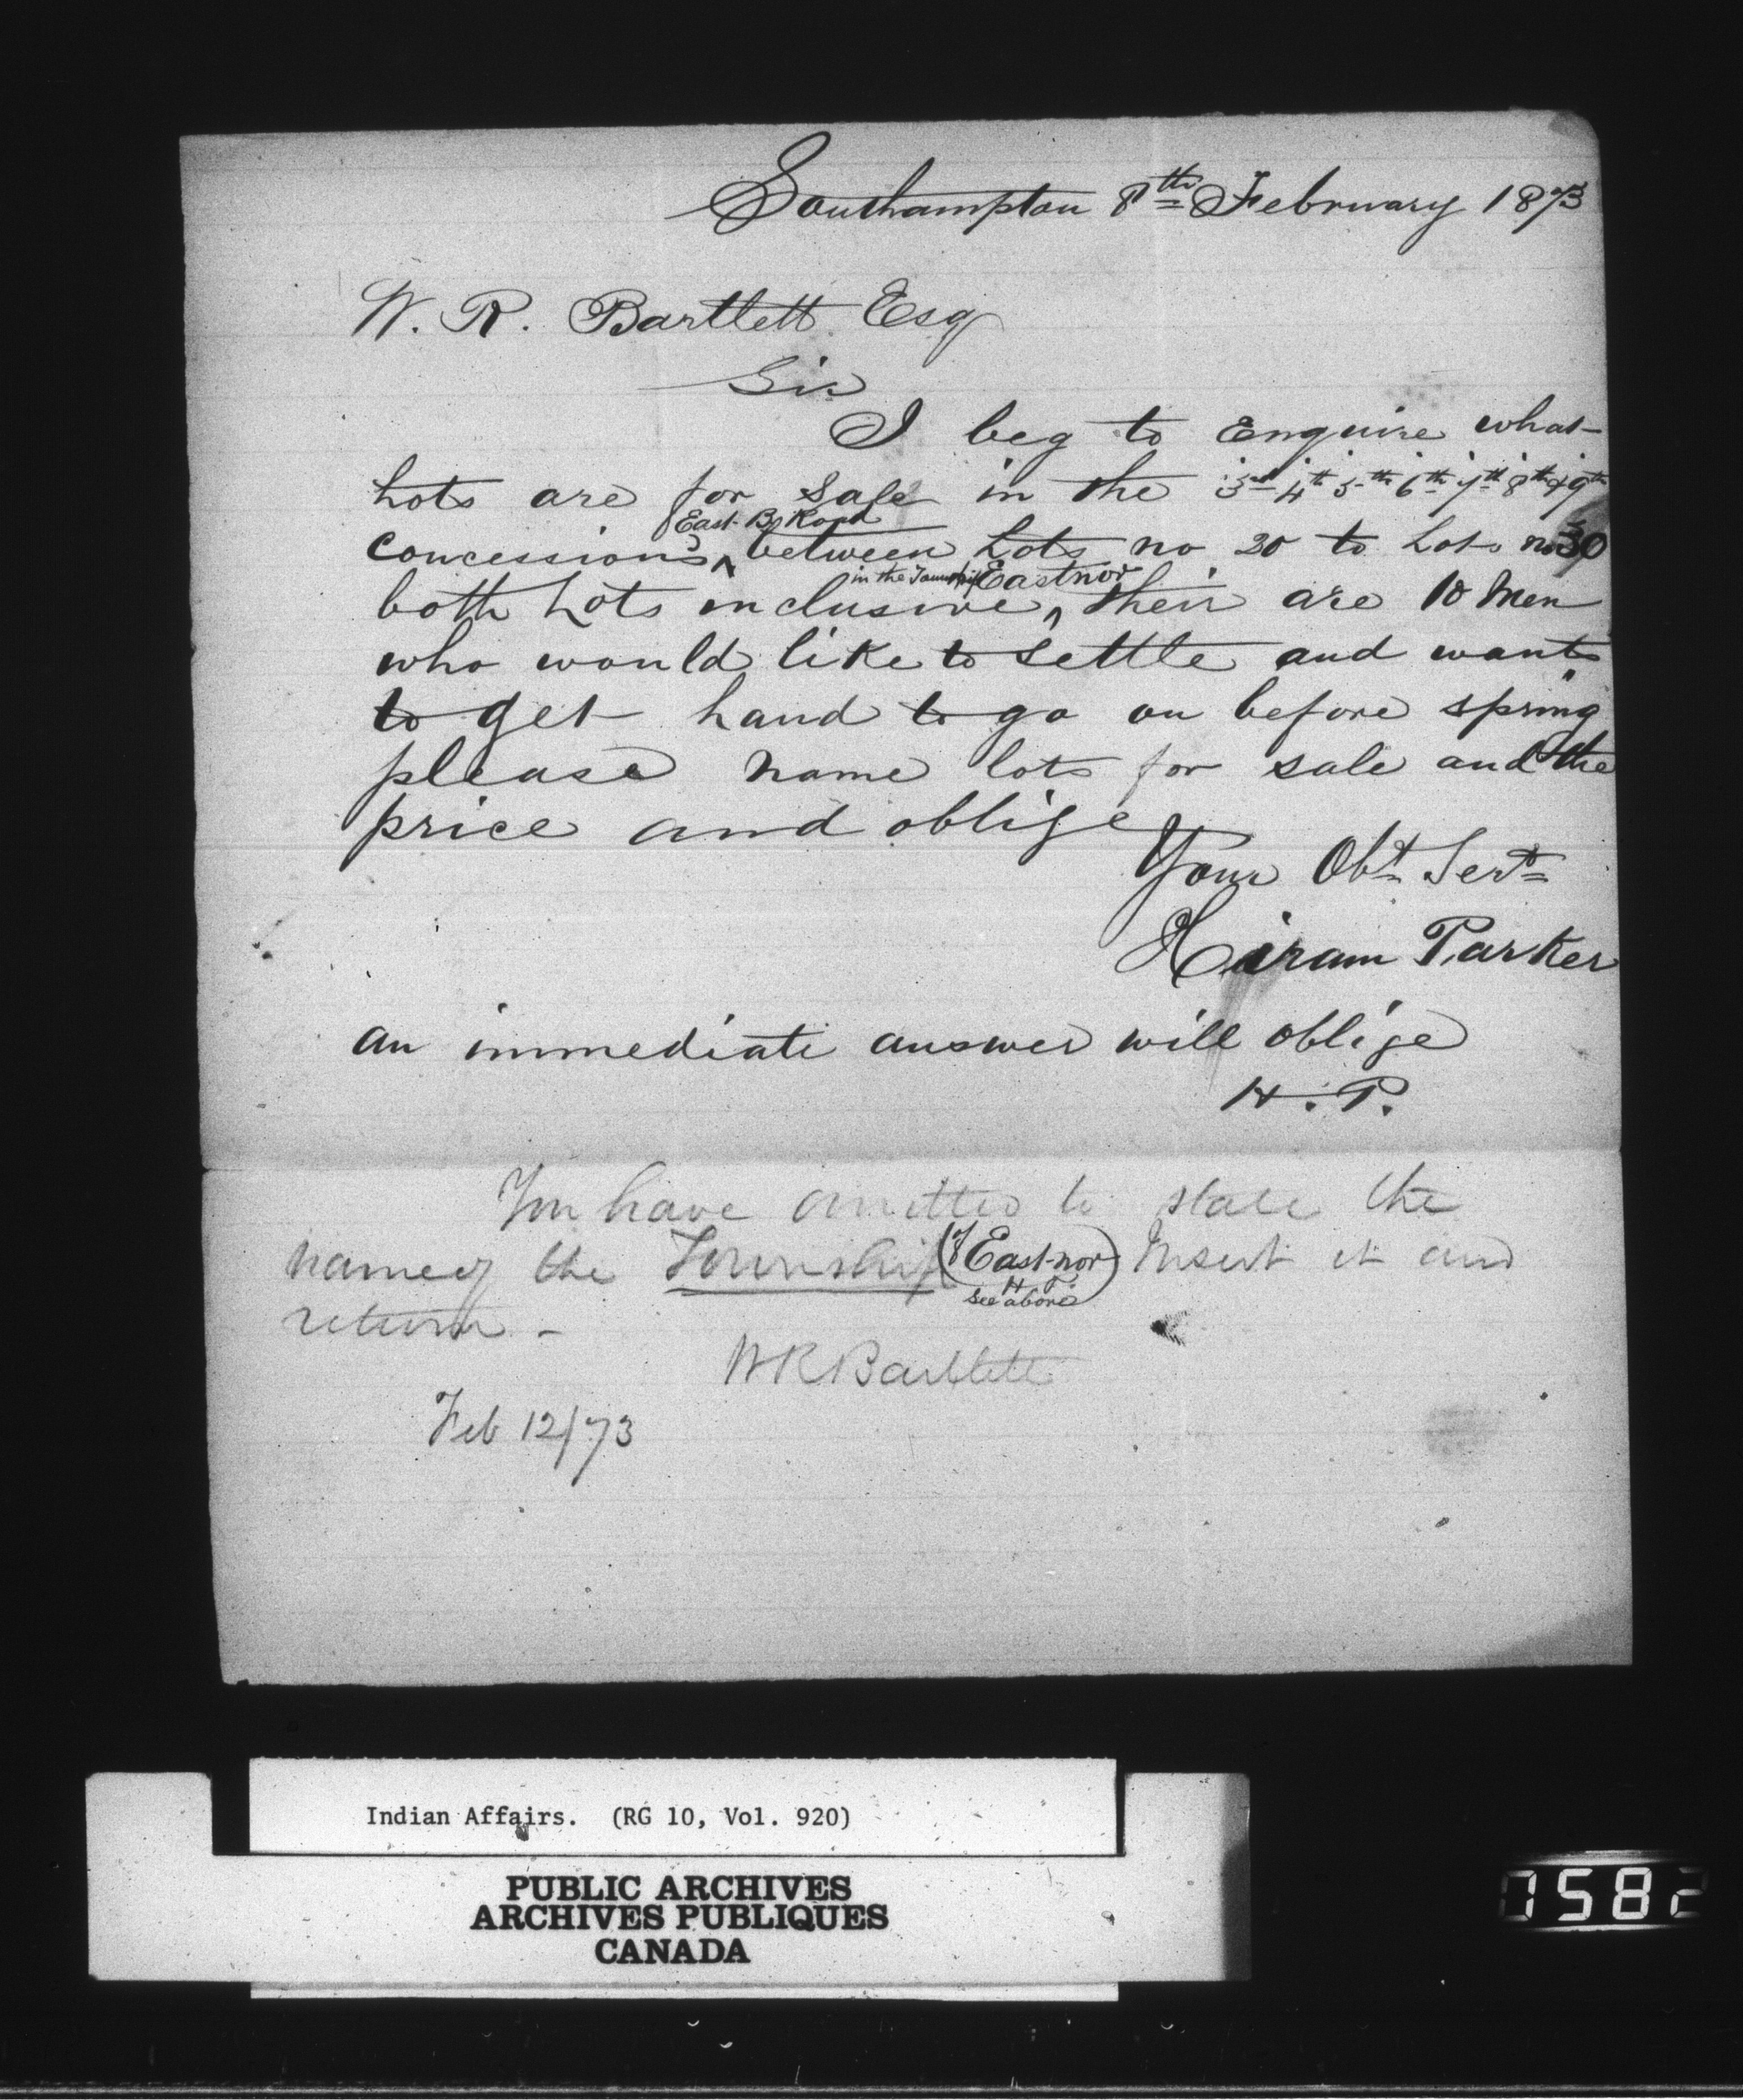 Southampton 8th February 1873
W. R. Bartlett Esq
Sir
I beg to Enquire what
Lots are for Sale in the 3rd 4th 5th 6th 7th 8th & 9th
East B. Road
concessions ^ between Lots no 20 to Lot no 30
in the Township Eastnor
both Lots inclusive ^ their are 10 Men
who would like to settle and wants
to get hand to go on before spring
please name lots for sale and the
price and oblige
Your Obt Sert
Hiram Parker
an immediate answer will oblige
H. P.
You have omitted to state the
name of the Township (of Eastnor) Insert it and
H. P.
see above
return -
W R Bartlett
Feb 12/73
Indian Affairs. (RG 10, Vol. 920)
PUBLIC ARCHIVES
ARCHIVES PUBLIQUES
CANADA
1582